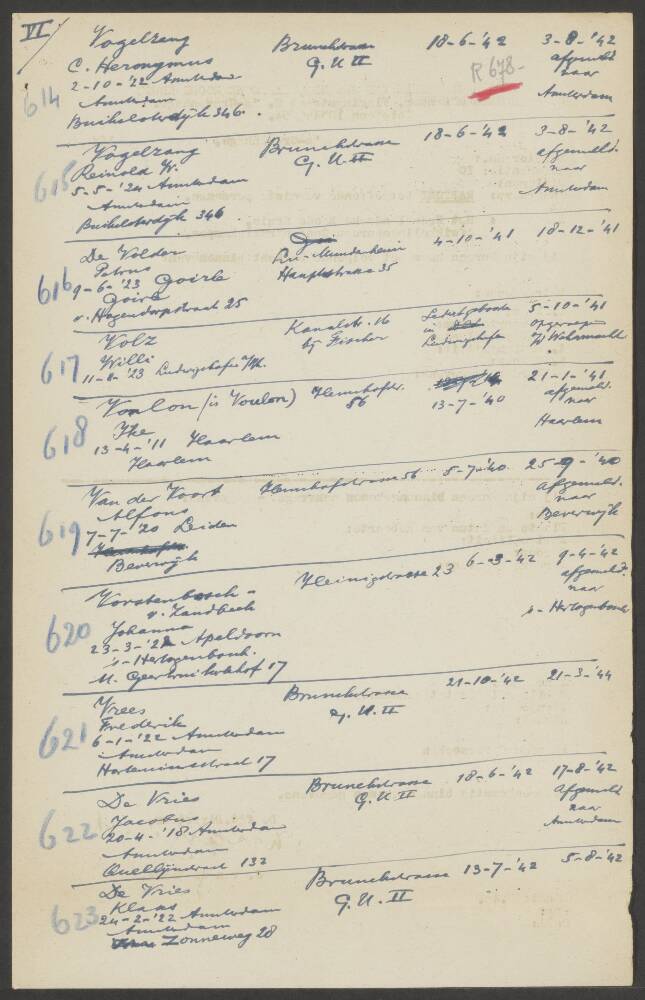 VI
R 678-
614
Vogelzang Brunckstrasse 18-6-'42 3-8-'42
C. Heronymus G.U.II afgemeld
2-10-'22 Amsterdam naar
Amsterdam Amsterdam
Buiksloterdijk 346.
615
Vogelzang Brunckstrasse 18-6-'42 3-8-'42
Reinold W. G.U.II afgemeld.
5-5-'24 Amsterdam naar
Amsterdam Amsterdam
Buiksloterdijk 346
616
De Volder Lu-Mundenheim 4-10-'41 18-12-'41
Petrus Hauptstrasse 35
9-6-'23 Goirle
Goirle
v. Hogendorpstraat 25
617
Volz Kanalstr. 16 5-10-'41
Willi bij Fischer in opgeroepen
11-8-'23 Ludwigshafen a/Rh. Ludwigshafen Wehrmacht
618
Vonlon (is Voulon) Hemshofstr. 21-1-'41
Ike 86 13-7-'40 afgemeld.
13-4-'11 Haarlem naar
Haarlem Haarlem
619
Van der Voort Hemshofstrasse 56 5-7-'40 25-9-'40
Alfons afgemeld.
7-7-'20 Leiden naar
Beverwijk Beverwijk
620
Vorstenbosch - Heinigstrasse 23 6-3-'42 9-4-'42
v. Zandbeek afgemeld.
Johanna naar
23-3-'22 Apeldoorn s-Hertogenbosch
's-Hertogenbosch.
17
621
Vrees Brunckstrasse 21-10-'42 21-3-'44
Frederik G.U.II
6-1-'22 Amsterdam
Amsterdam
17
622
De Vries Brunckstrasse 18-6-'42 17-8-'42
Jacobus G.U.II afgemeld
20-4-'18 Amsterdam naar
Amsterdam Amsterdam
Quellijnstraat 132
623
De Vries Brunckstrasse 13-7-'42 5-8-'42
Klaas G.U.II
24-2-'22 Amsterdam
Amsterdam
Zonneweg 28